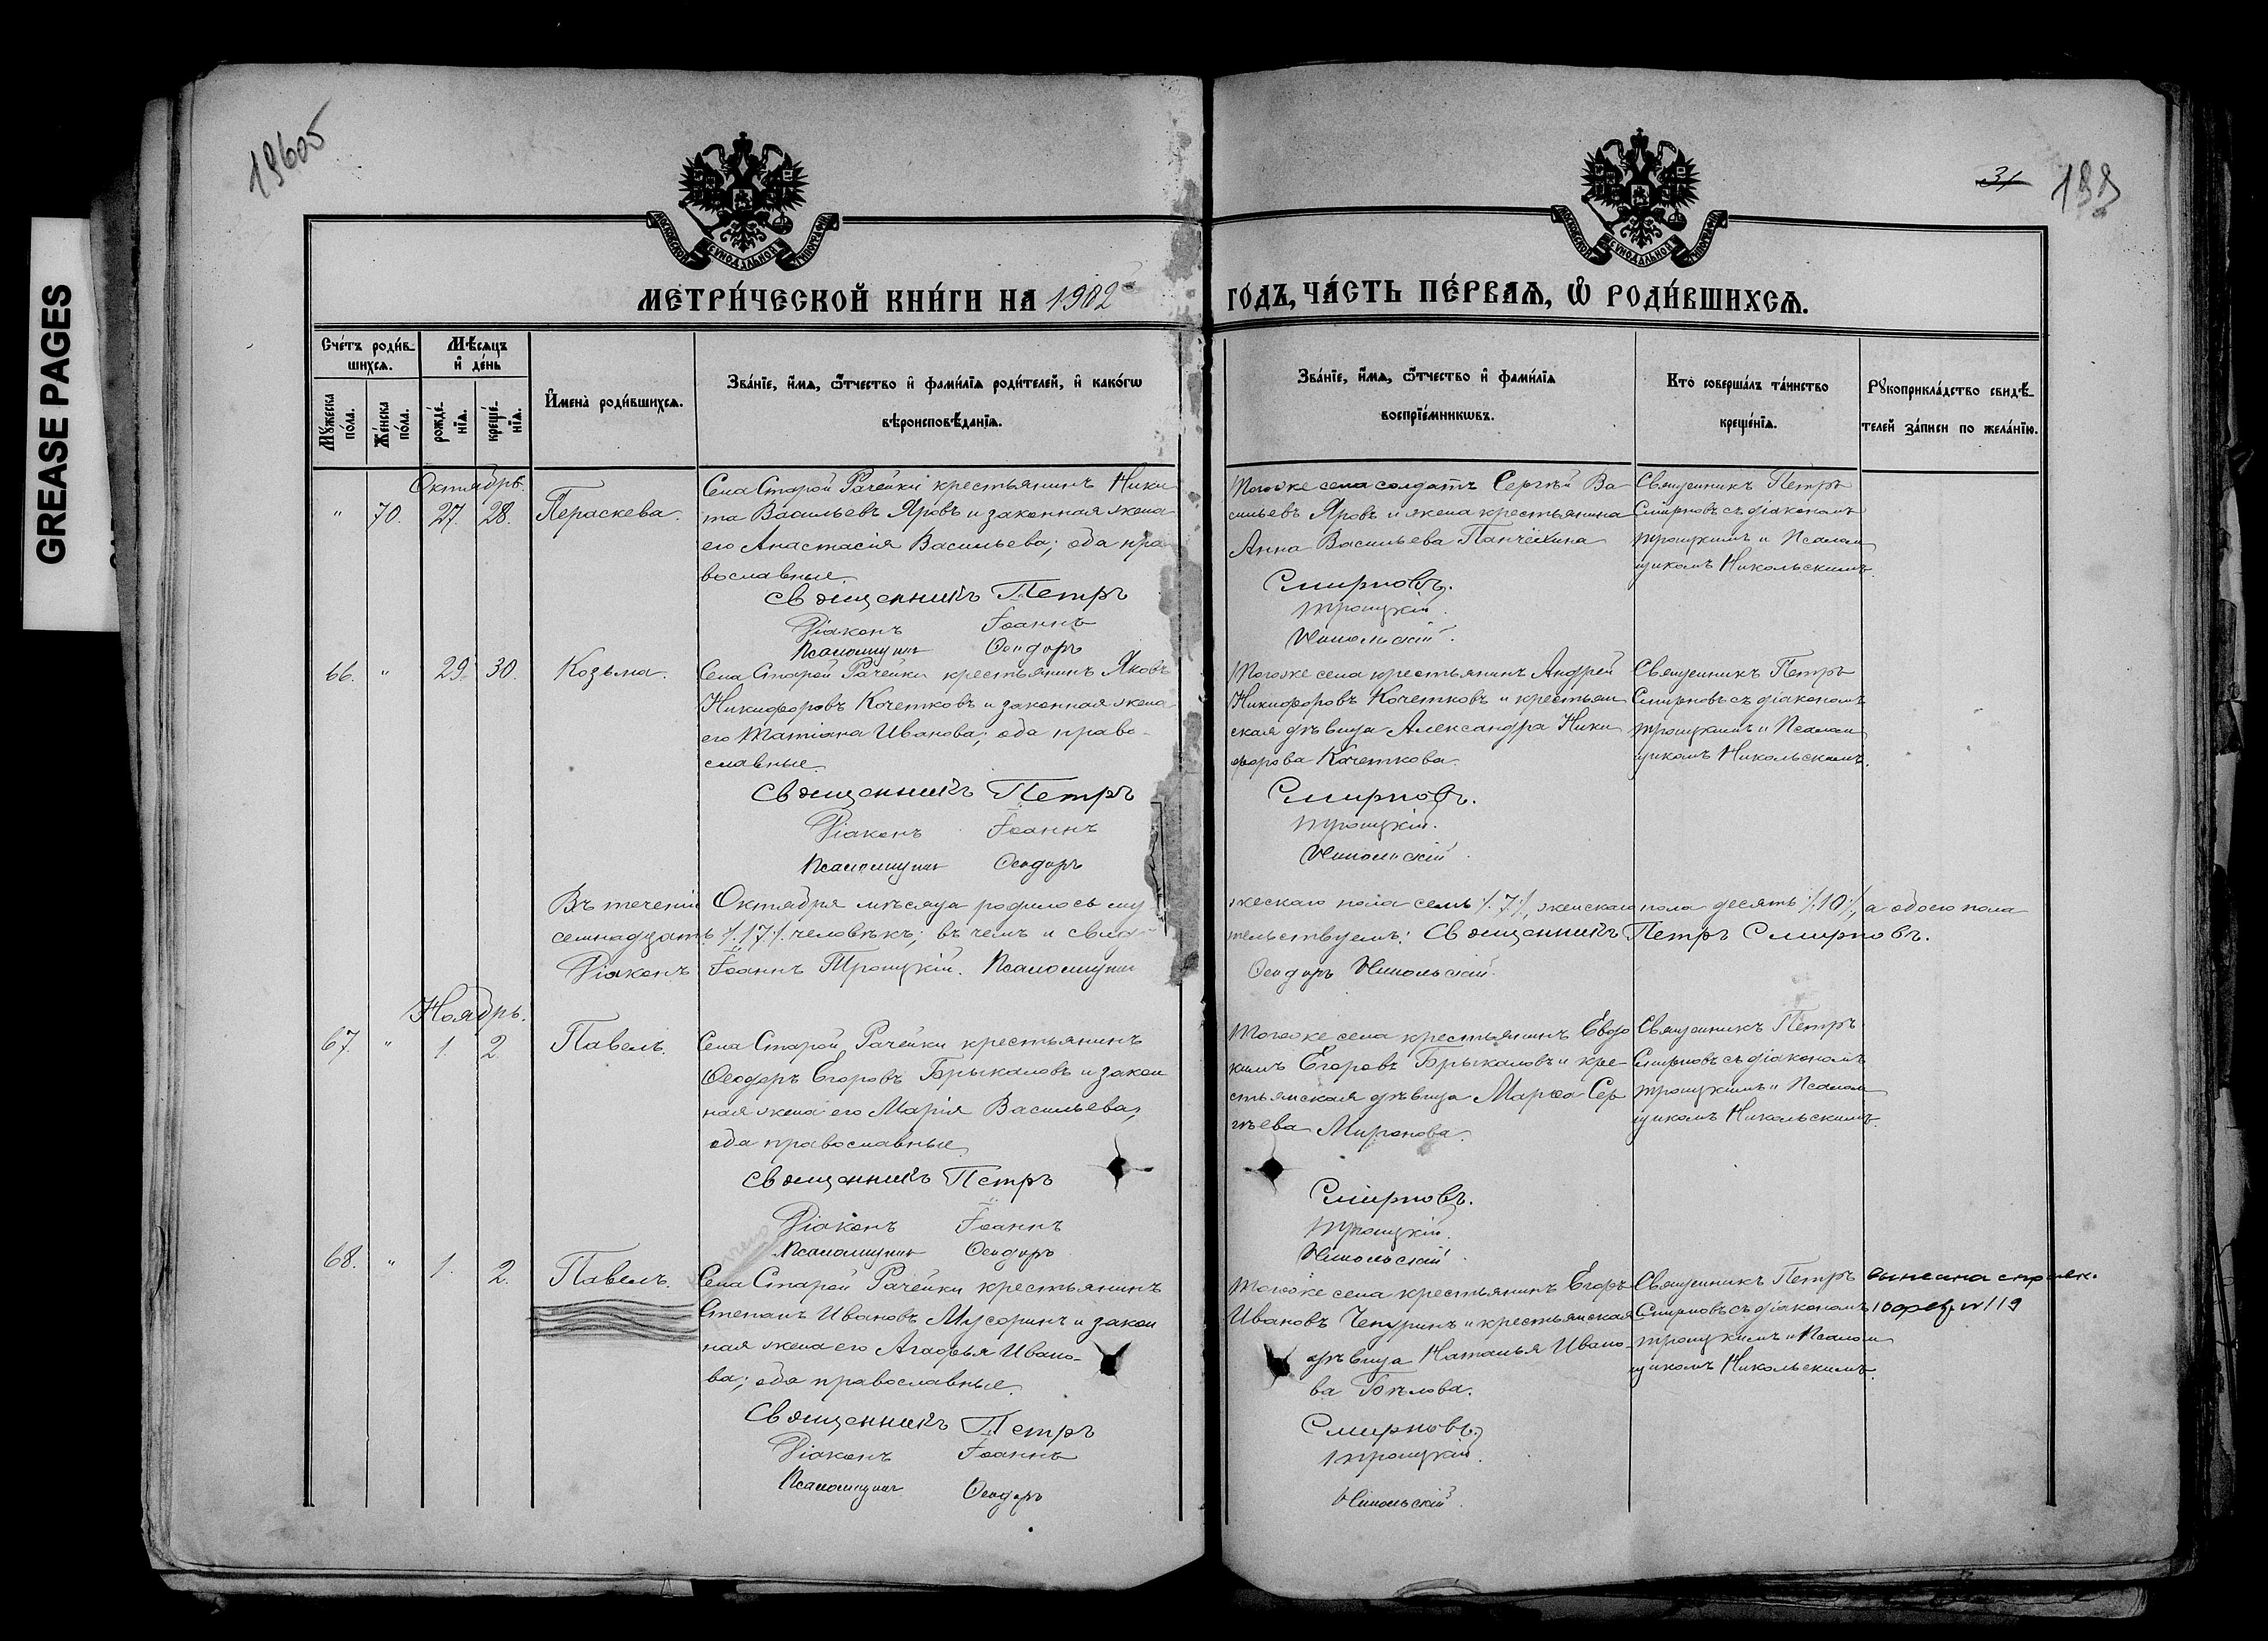 GREASE PAGES
19605
31
199
МОСКОВСКОЙ СѴНОДАЛЬНОЙ ТИПОГРАФІИ
МОСКОВСКОЙ СѴНОДАЛЬНОЙ ТИПОГРАФІИ
МЕТРИ́ЧЕСКОЙ КНИ́ГИ НА 1902
ГО́ДЪ, ЧА́СТЬ ПЕ́РВАѦ, Ѽ РОДИ́ВШИХСѦ.
Сче́тъ роди́в-
шихсѧ.
Мѣ́сѧцъ
и҆ де́нь
Мꙋ́жеска
по́ла.
Же́нска
по́ла.
рожде́-
нїѧ.
креще́-
нїѧ.
И҆мена̀ роди́вшихсѧ.
Зва́нїе, и҆́мѧ, ѻ҆́тчество и҆ фами́лїѧ роди́телей, и҆ како́гѡ
вѣроисповѣ́данїѧ.
Зва́нїе, и҆́мѧ, ѻ҆́тчество и҆ фами́лїѧ
воспрїе́мникѡвъ.
Кто̀ соверша́лъ та́инство
креще́нїѧ.
Рꙋкоприкла́дство свидѣ́-
телей за́писи по жела́нїю.
Октябрь.
" 70. 27. 28. Параскева.
Села Старой Рачейки крестьянинъ Ники
та Васильевъ Яровъ и законная жена
его Анастасія Васильева; оба пра
вославные.
Священникъ Петръ
Діаконъ Іоаннъ
Псаломщикъ Ѳеодоръ
Тогоже села солдатъ Сергѣй Ва
сильевъ Яровъ и жена крестьянина
Анна Васильева Панчёхина
Смирновъ.
Троицкій.
Никольскій.
Священникъ Петръ
Смирновъ съ діакономъ
Троицкимъ и Псалом
щикомъ Никольскимъ.
66. " 29. 30. Козьма.
Села Старой Рачейки крестьянинъ Яковъ
Никифоровъ Кочетковъ и законная жена
его Татіана Иванова; оба право-
славные.
Священникъ Петръ
Діаконъ Іоаннъ
Псаломщикъ Ѳеодоръ
Тогоже села крестьянинъ Андрей
Никифоровъ Кочетковъ и крестьян
ская дѣвица Александра Ники
форова Кочеткова.
Смирновъ.
Троицкій.
Никольскій.
Священникъ Петръ
Смирновъ съ діакономъ
Троицкимъ и Псалом
щикомъ Никольскимъ.
Въ теченіи Октября мѣсяца родилось му
жескаго пола семь /.7./, женскаго пола десять /.10./, а обоего пола
семнадцать /.17./. человѣкъ; въ чемъ и свидѣ
тельствуемъ: Священникъ Петръ Смирновъ.
Діаконъ Іоаннъ Троицкій. Псаломщикъ
Ѳеодоръ Никольскій.
Ноябрь.
67. " 1. 2. Павелъ.
Села Старой Рачейки крестьянинъ
Ѳеодоръ Егоровъ Брыкаловъ и закон
ная жена его Марія Васильева,
оба православные.
Священникъ Петръ
Діаконъ Іоаннъ
Псаломщикъ Ѳеодоръ
Тогоже села крестьянинъ Евдо
кимъ Егоровъ Брыкаловъ и кре-
стьянская дѣвица Марѳа Сер
гѣева Миронова.
Смирновъ.
Троицкій.
Никольскій.
Священникъ Петръ
Смирновъ съ діакономъ
Троицкимъ и Псалом
щикомъ Никольскимъ.
68. " 1. 2. Павелъ.
Села Старой Рачейки крестьянинъ
Степанъ Ивановъ Мусоринъ и закон
ная жена его Агафья Ивано-
ва; оба православные.
Священникъ Петръ
Діаконъ Іоаннъ
Псаломщикъ Ѳеодоръ
Тогоже села крестьянинъ Егоръ
Ивановъ Чепуринъ и крестьянская
дѣвица Наталья Ивано-
ва Бѣлова.
Смирновъ.
Троицкій.
Никольскій.
Священникъ Петръ
Смирновъ съ діакономъ
Троицкимъ и Псалом
щикомъ Никольскимъ.
119